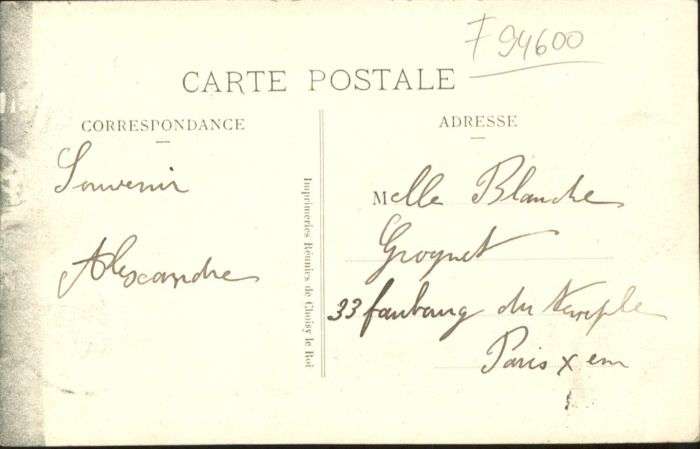 F 94600
CARTE POSTALE
CORRESPONDANCE
ADRESSE
Souvenir
Alexandre
Imprimeries Réunies de Choisy le Roi
Melle Blanche
Groynet
33 faubourg du temple
Paris x em